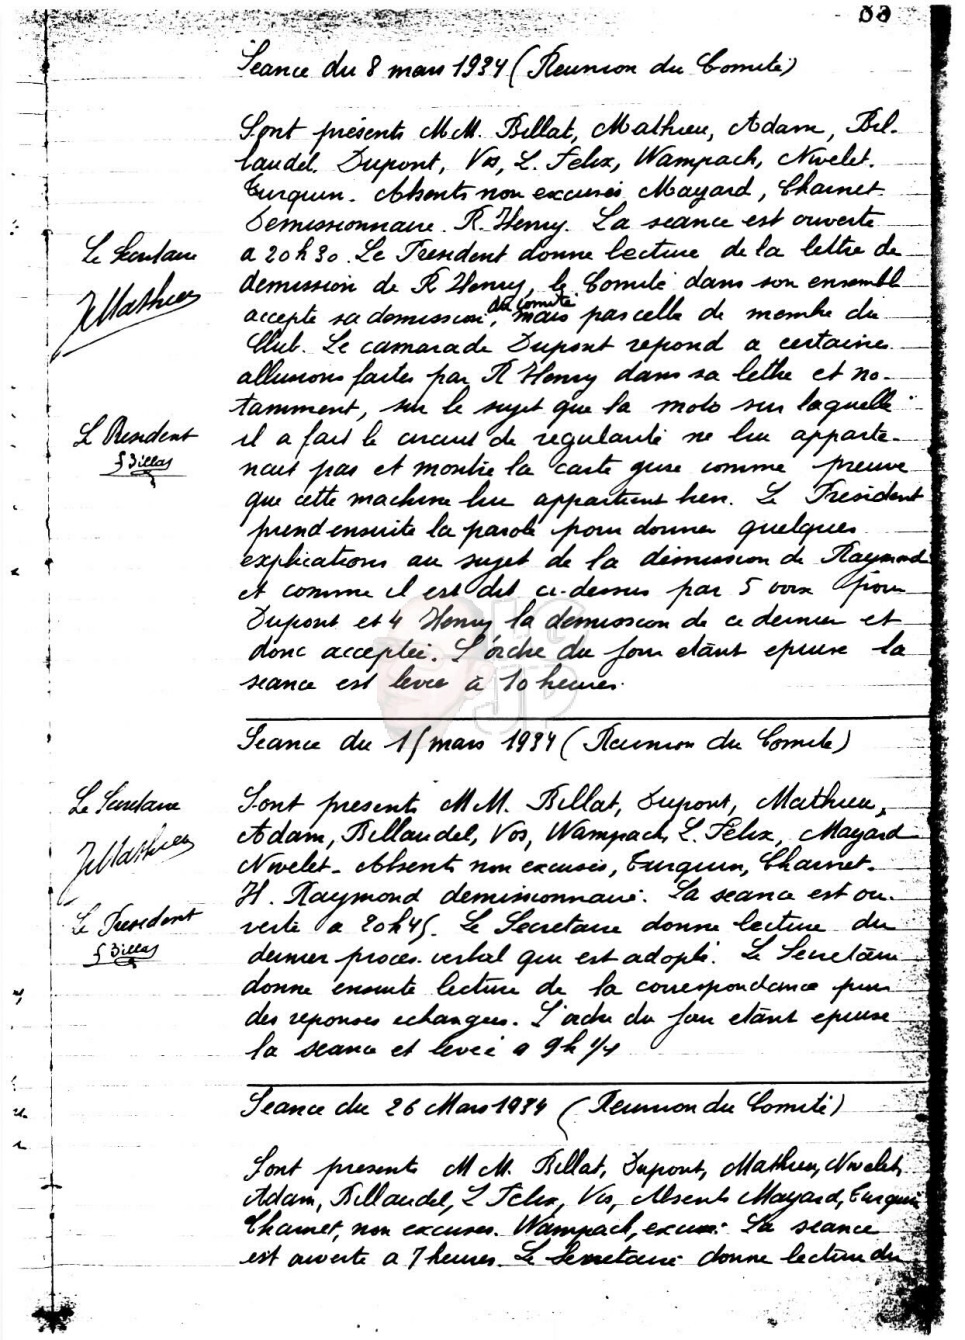 Séance du 8 mars 1934 (Réunion du Comité)
Sont présents M.M. Billat, Mathieu, Adam, Bil-
laudel, Dupont, Vos, L. Felix, Wampach, Nivelet.
Turquin. Absents non excusés, Mayard, Charnet
Démissionnaire. R. Henry. La séance est ouverte
a 20h30. Le President donne lecture de la lettre de
demission de R Henry, le Comité dans son ensembl
accepte sa demission, du comité mais pas celle de membre du
Club. Le camarade Dupont repond a certaines
allusions faites par R Henry dans sa lettre et no-
tamment, sur le sujet que la moto sur laquelle
il a fait le circuit de regularité ne lui apparte-
nait pas et montre la carte grise comme preuve
que cette machine lui appartient bien. Le President
prend ensuite la parole pour donner quelques
explications au sujet de la démission de Raymond
et comme il est dit ci-dessus par 5 voix pour
Dupont et 4 Henry la démission de ce dernier et
donc acceptée. L'ordre du jour étant epuisé la
séance est levée à 10 heures.
Le Secretaire
JMathieu
Le President
Billat
Séance du 15 mars 1934 (Réunion du Comité)
Sont presents M.M. Billat, Dupont, Mathieu,
Adam, Billaudel, Vos, Wampach, L. Felix, Mayard
Nivelet. Absents non excusés, Turquin, Charnet.
H. Raymond demissionnaire. La séance est ou-
verte a 20h45. Le Secretaire donne lecture du
dernier procès-verbal qui est adopté. Le Secretaire
donne ensuite lecture de la correspondance puis
des reponses echangees. L'ordre du jour etant epuise
la seance et levée a 9h 1/4
Le Secretaire
JMathieu
Le President
Billat
Séance du 26 Mars 1934 (Réunion du Comité)
Sont presents M M. Billat, Dupont, Mathieu, Nivelet,
Adam, Billaudel, L Felix, Vos, Absents Mayard, Turquin
Charnet, non excusés. Wampach, excusé. La seance
est ouverte a 7 heures. Le Secretaire donne lecture du